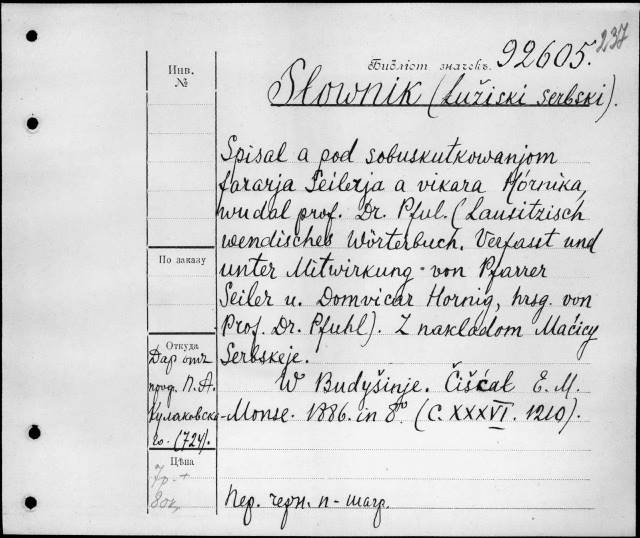 237
Библіот. значекъ 92605.
Słownik (Łužiski serbski).
Инв.
№
Spisal a pod sobuskutkowanjom
fararja Seilerja a vikara Hórnika,
wudal prof. Dr. Pful. (Lausitzisch
wendisches Wörterbuch. Verfasst und
По заказу
unter Mitwirkung von Pfarrer
Seiler u. Domvicar Hornig, hrsg. von
Prof. Dr. Pfuhl). Z nakładom Maćicy
Serbskeje.
Откуда
Даръ отъ
проф. П. А.
Кулаковска-
го. (724).
W Budyšinje. Čišćał E. M.
Monse. 1886. in 8º. (C. XXXVI. 1210).
Цѣна
7р. +
80к.
Пер. черн. п-шагр.